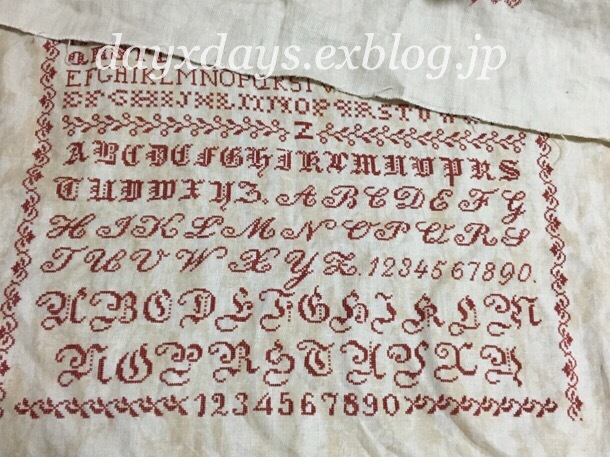 dayxdays.exblog.jp
EFGHIKLMNOPQRST
Z
ABCDEFGHIKLMNOPRS
TUVWXYZ. ABCDEFG
HIKLMNOPQRS
TUVWXYZ. 1234567890.
ABCDEFGHIKLM
NOPRSTUVXY
1234567890